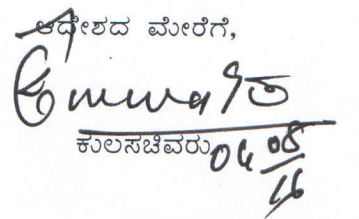 ಆದೇಶದ ಮೇರೆಗೆ,
ಕುಲಸಚಿವರು
04
08
16